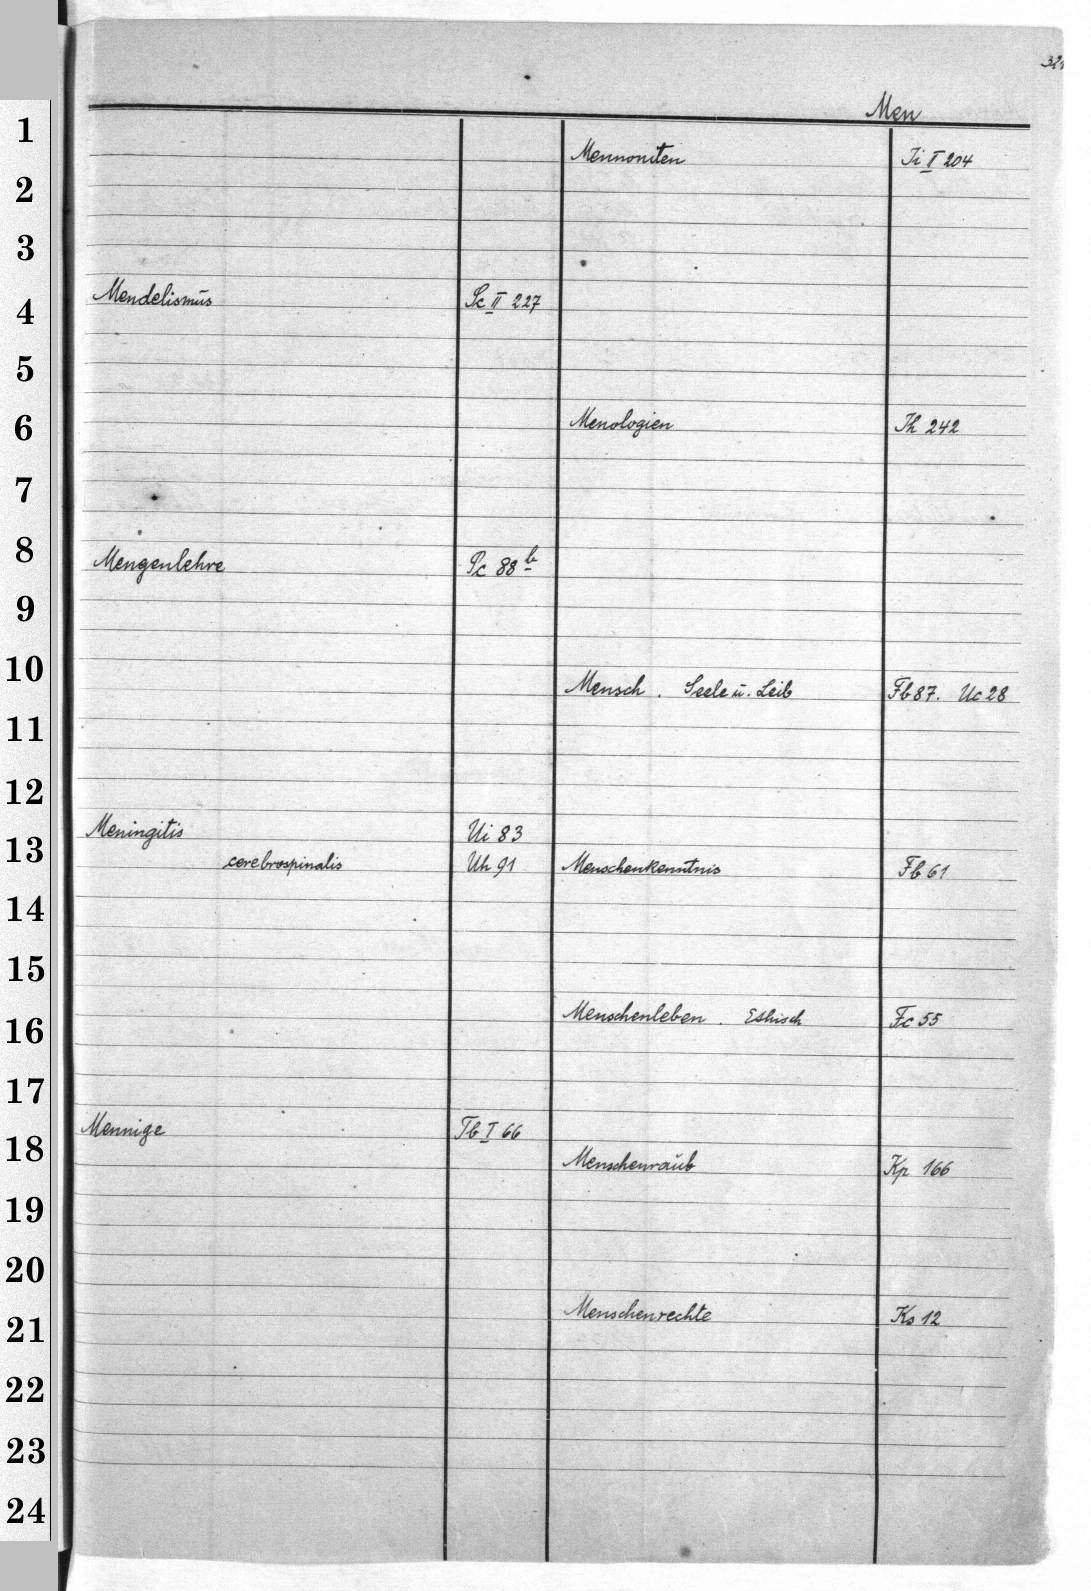 Men
Mendelismus Sc II 227
Mengenlehre Pc 88 b
Meningitis Ui 83
cerebrospinalis Uh 91
Mennige Tb I 66
Mennoniten Ti I 204
Menologien Th 242
Mensch . Seele u. Leib Fb 87. Uc 28
Menschenkenntnis Fb 61
Menschenleben . Ethisch Fc 55
Menschenraub Kp 166
Menschenrechte Ks 12
1
2
3
4
5
6
7
8
9
10
11
12
13
14
15
16
17
18
19
20
21
22
23
24